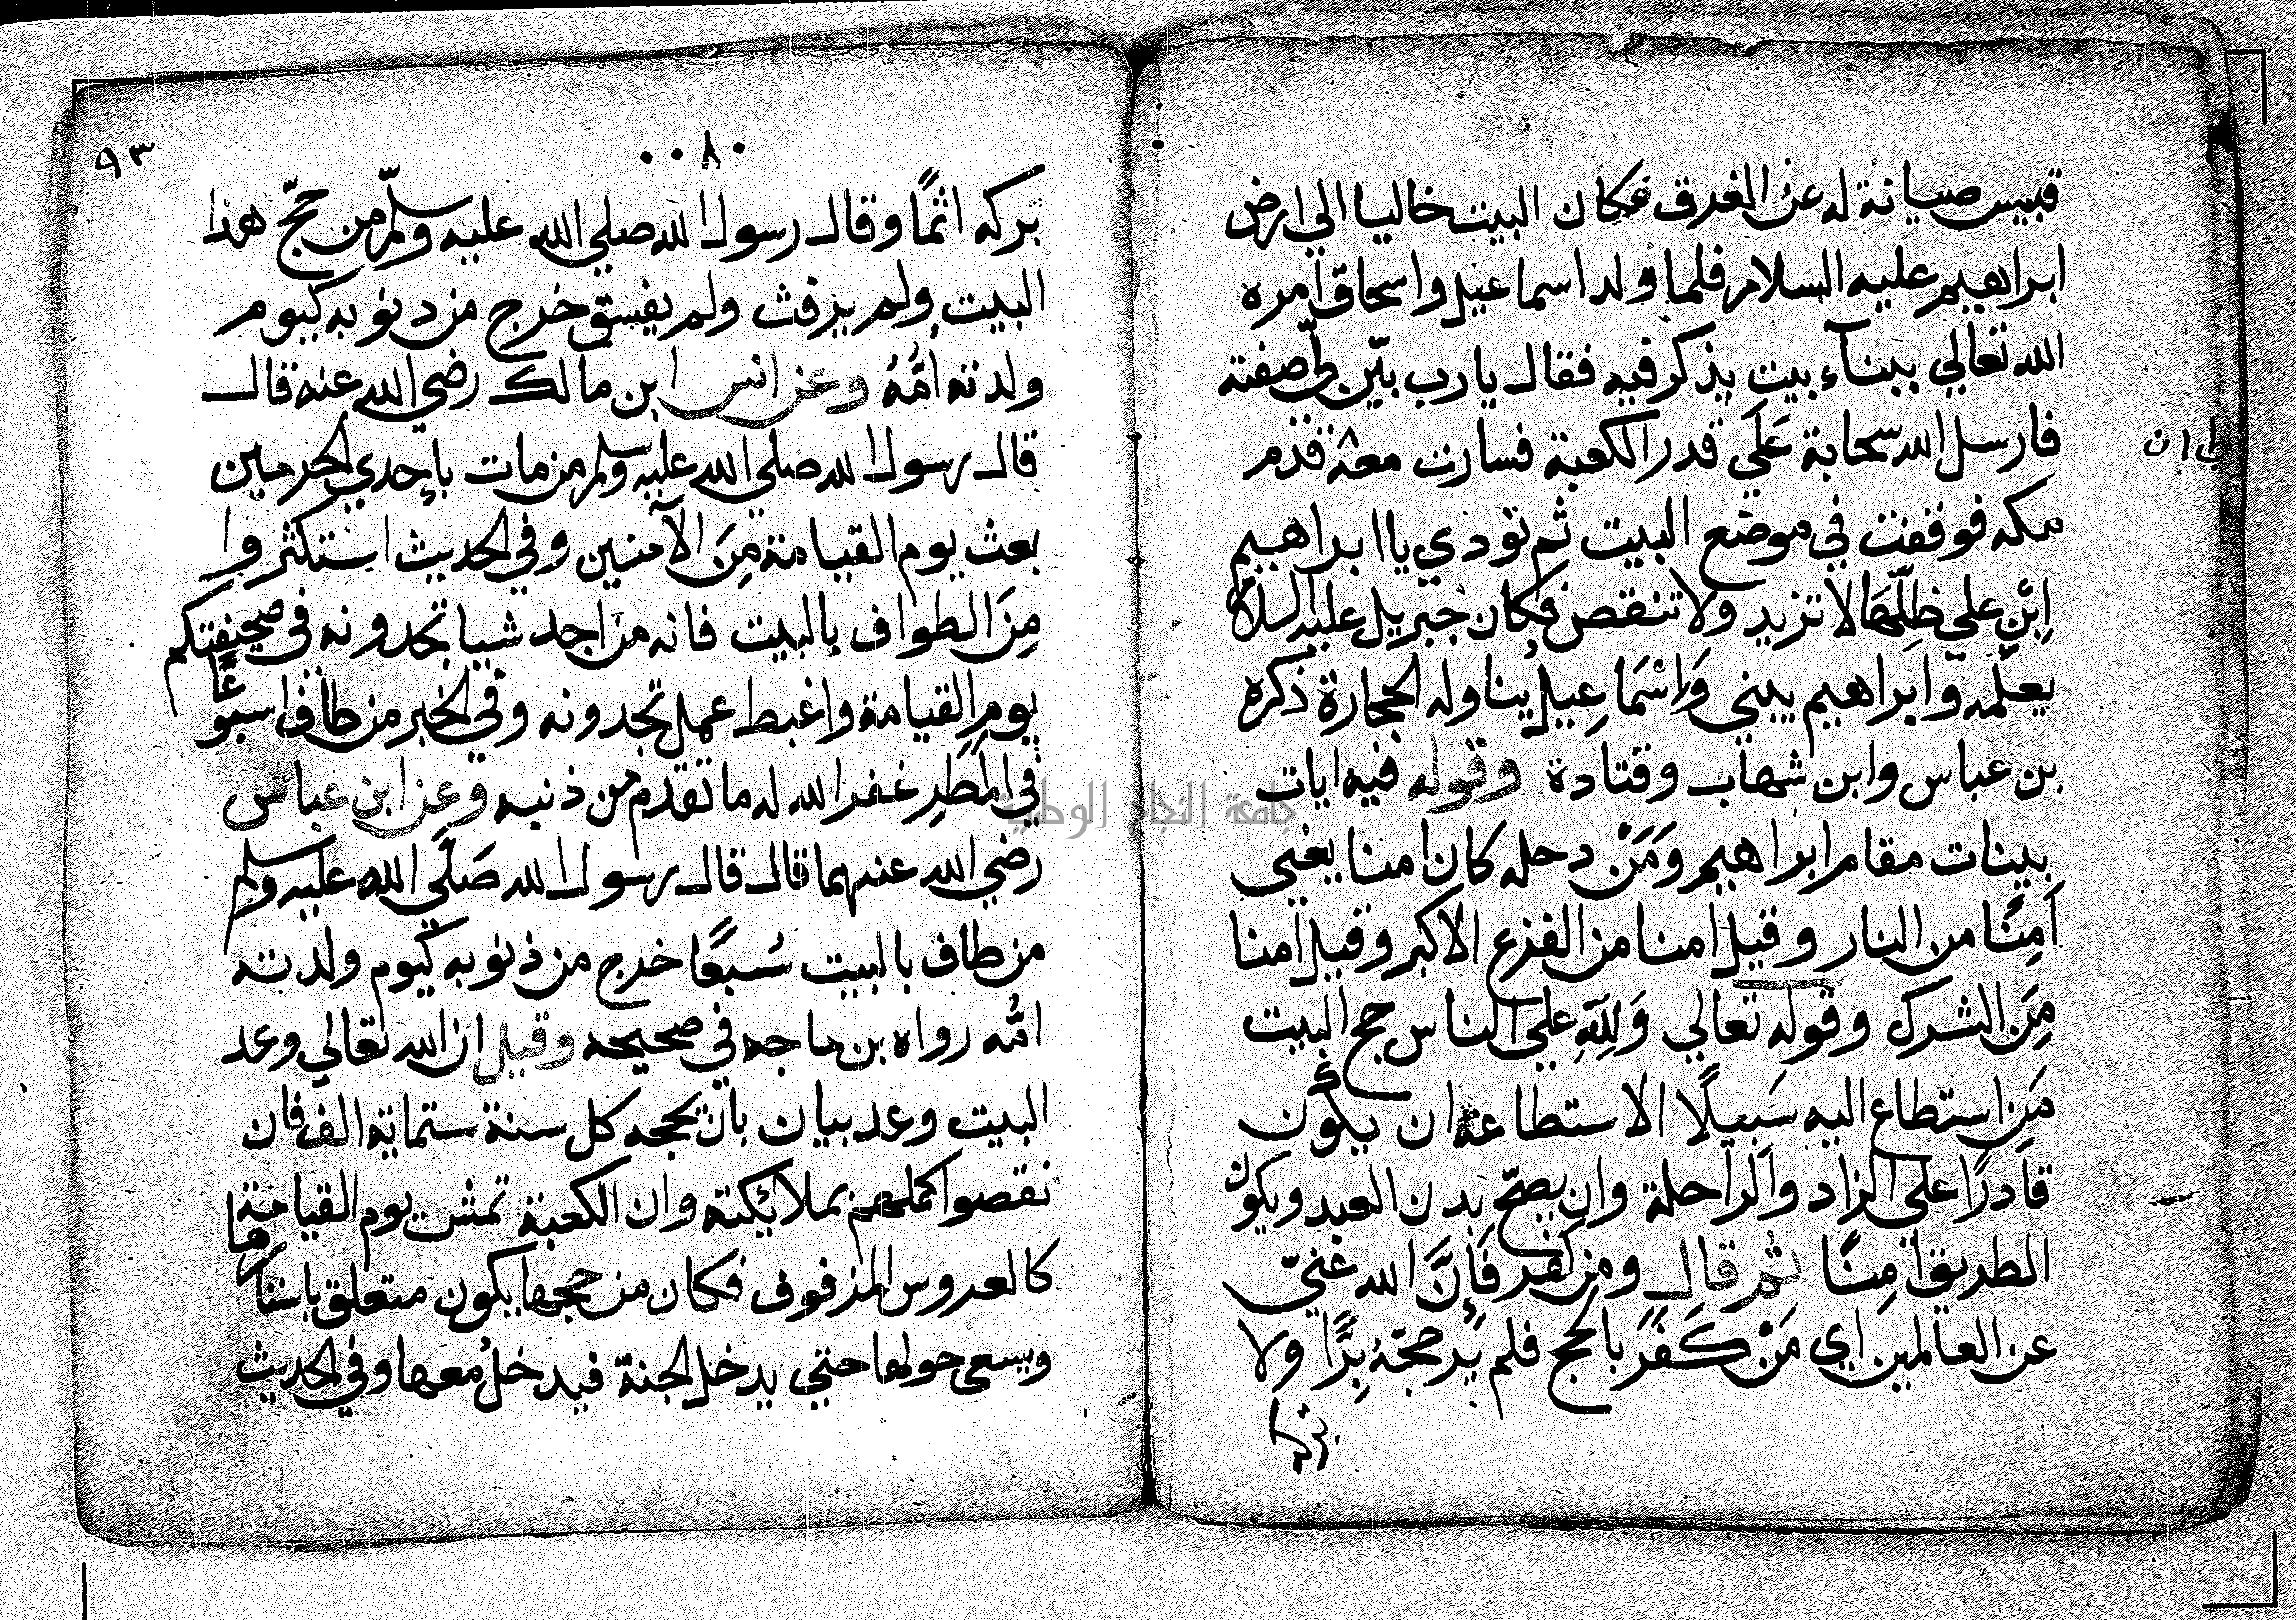 قبيس صيانة له عن الغرق فكان البيت خاليا الي ارض
ابراهيم عليه السلام فلما ولد اسماعيل واسحاق امره
الله تعالي ببنآء بيت يذكر فيه فقال يارب بيّن لي صفته
فارسل الله سحابة عَلَي قدر الكعبة فسارت معه قدم
مكه فوقفت في موضع البيت ثم نودي يا ابراهيم
اِبْنِ علي ظِلِّهَا لا تزيد ولا تنقص فكان جبريل عليه السلام
يعلّمه وابراهيم يبني وَاِسْمَاعِيل يناوله الحجارة ذكره
بن عباس وابن شهاب وقتادة وقوله فيه ايات
بينات مقام ابراهيم وَمَنْ دحله كان امنا يعني
اَمِنًا من النار وقيل امنا من الفزع الاكبر وقيل امنا
مِنَ الشرك وقوله تعالي وَلِلّهِ علي الناس حج البيت
مَنِ استطاع اليه سَبِيلًا الاستطاعة ان يكون
قادرًا علي الزاد والراحلة وان يصحّ بدن العبد ويكون
الطريق امِنًا ثم قال ومن كفر فَاِنَّ الله غنيّ
عن العالمين اي مَنْ كَفَرَ بالحج فلم ير حجّه بِرًّا ولا
تركه
ان
٩٣
٨٠
تركه اثمًا وقال رسول الله صلي الله عليه وسلّم من حجّ هذا
البيت ولم يرفث ولم يفسق خرج من دنوبه كيوم
ولدته اُمُّهُ وعن انس ابن مالك رضي الله عنه قال
قال رسول الله صلي الله عليه وسلم من مات باِحدي الحرمين
بعث يوم القيامة مِنَ الآمنين وفي الحديث استكثروا
مِنَ الطواف بالبيت فانه من اجد شيا تجدونه في صحيفتكم
يوم القيامة واغبط عمل تجدونه وفي الخبر من طاف اسبوعًا
في المطرِ غفر الله له ما تقدم من ذنبه وعن ابن عباس
رضي الله عنهما قال قال رسول الله صَلَّي الله عليه وسلم
من طاف بالبيت سُبعًا خرج من ذنوبه كيوم ولدته
امُّه رواه بن ماجه في صحيحه وقيل ان الله تعالي وعد
البيت وعد بيان بان يحجه كل سنة ستماية الف فان
نقصوا كملهم بملائكته وان الكعبة تمشي يوم القيامة
كالعروس المزفوف فكان من حجها يكون متعلق باستارها
ويسعي حولها حتي يدخل الجنة فيدخلُ معها وفي الحديث
جامعة النجاح الوطنية